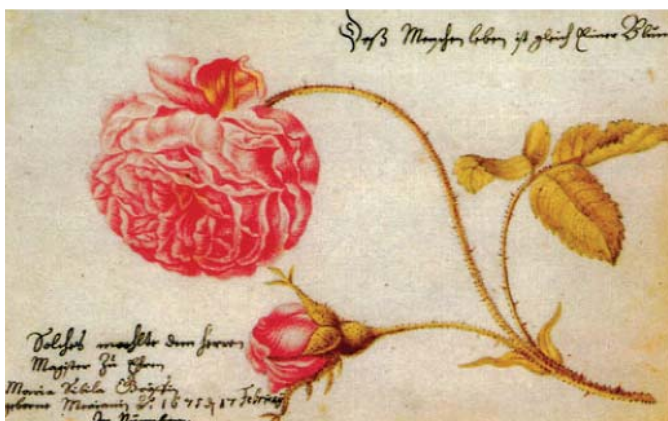 Daß Menschen leben ist gleich Einer Blum
Solches mahlte dem Herren
Magister Zu Ehren
Maria Sibila Gräffin
geborne Merianin 1675 17 Februarÿ
In Nürnberg